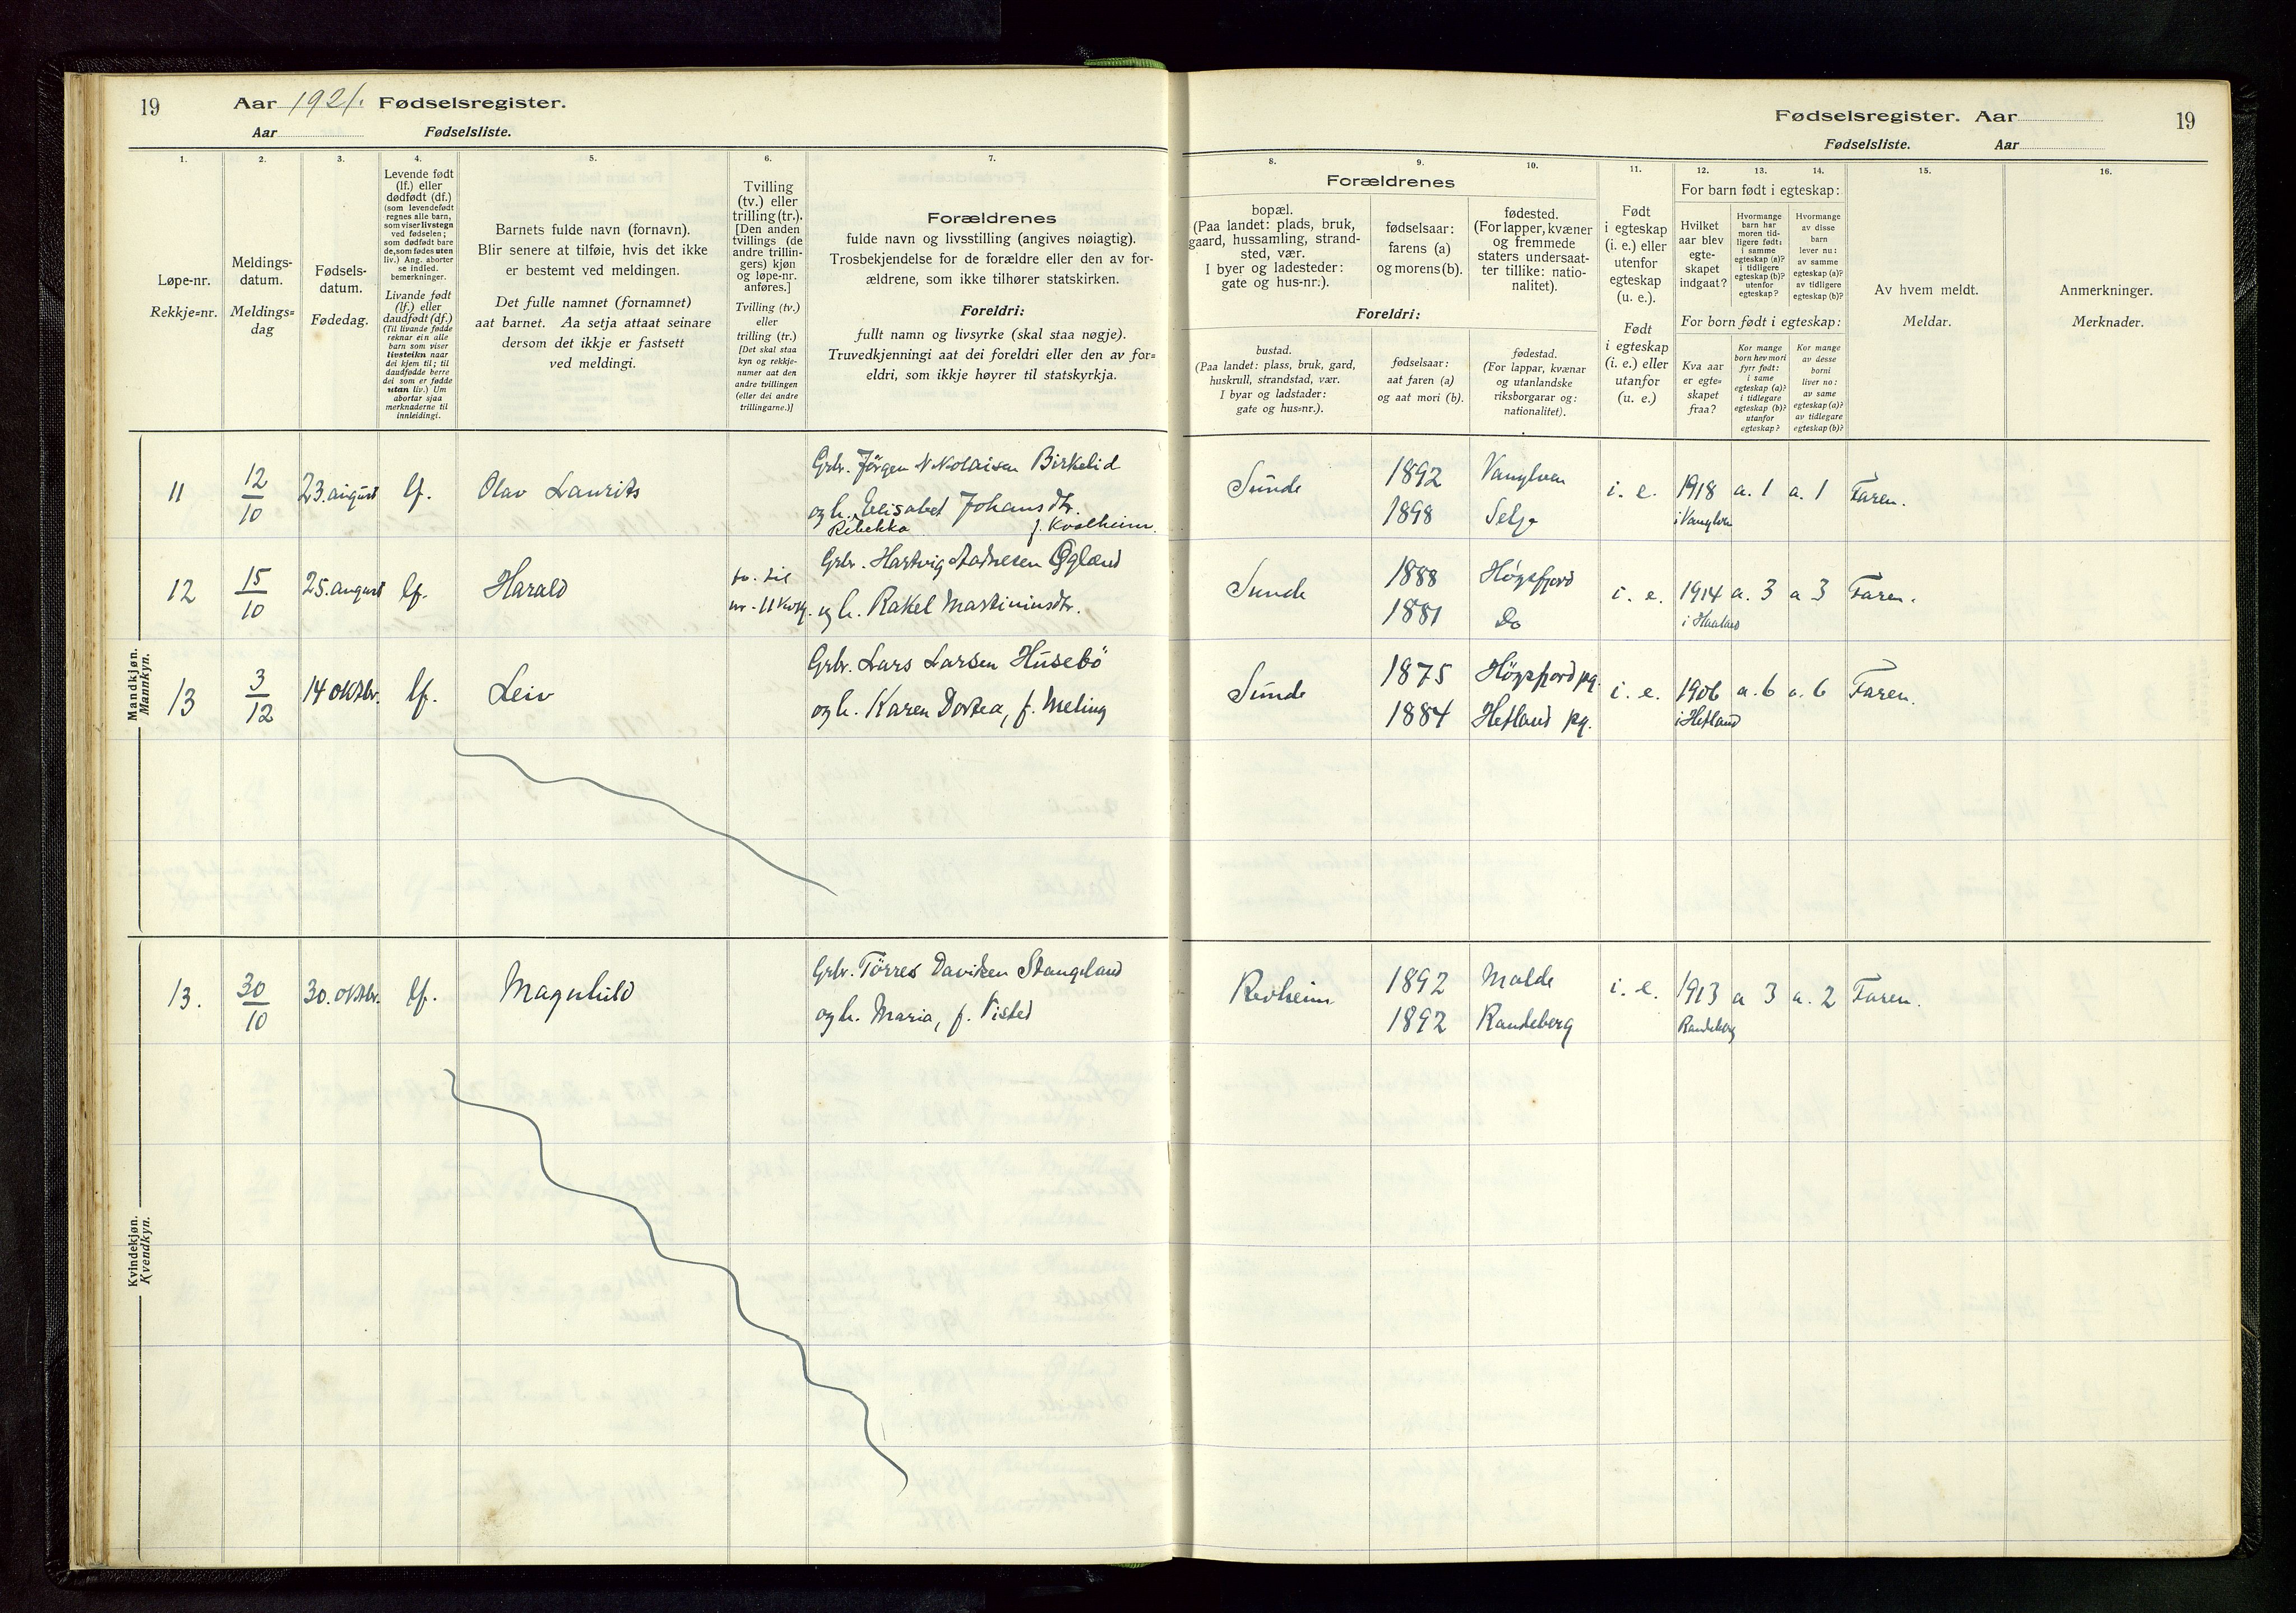 19
Aar 1921. Fødselsregister.
Aar Fødselsliste.
1.
2.
3.
4.
5.
6.
7.
Løpe-nr.
Rekkje=nr.
Meldings-
datum.
Meldings=
dag
Fødsels-
datum.
Fødedag.
Levende født
(lf.) eller
dødfødt (df.)
(som levendefødt
regnes alle barn,
som viser livstegn
ved fødselen;
som dødfødt bare
de, som fødes uten
liv.) Ang. aborter
se indled.
bemerkninger.
Livande født
(lf.) eller
daudfødt (df.)
(Til livande fødde
reknar ein alle
barn som viser
livsteikn naar
dei kjem til; til
daudfødde berre
dei som er fødde
utan liv.) Um
abortar sjaa
merknaderne til
innleidingi.
Barnets fulde navn (fornavn).
Blir senere at tilføie, hvis det ikke
er bestemt ved meldingen.
Det fulle namnet (fornamnet)
aat barnet. Aa setja attaat seinare
dersom det ikkje er fastsett
ved meldingi.
Tvilling
(tv.) eller
trilling (tr.).
[Den anden
tvillings (de
andre trillin-
gers) kjøn
og løpe-nr.
anføres.]
Tvilling (tv.)
eller
trilling (tr.)
[Det skal staa
kyn og rekkje-
numer aat den
andre tvillingen
(eller dei andre
trillingarne.)]
Forældrenes
fulde navn og livsstilling (angives nøiagtig).
Trosbekjendelse for de forældre eller den av for-
ældrene, som ikke tilhører statskirken.
Foreldri:
fullt namn og livsyrke (skal staa nøgje).
Truvedkjenningi aat dei foreldri eller den av for=
eldri, som ikkje høyrer til statskyrkja.
Mandkjøn.
Mannkyn.
11
12
10
23. august
lf.
Olav Laurits
Grbr. Jørgen Nikolaisen Birkelid
og h. Elisabet Johansdtr.
Rebekka f. Kvalheim.
12
15
10
25. august
lf.
Harald
tv. til
nr. 11 kvkj.
Grbr. Hartvig Aadnesen Øgland
og h. Rakel Martiniusdtr.
13
3
12
14 oktbr.
lf.
Leiv
Grbr. Lars Larsen Husebö
og h. Karen Dortea, f. Meling
Kvindekjøn.
Kvendkyn.
13.
30
10
30. oktbr.
lf.
Magnhild
Grbr. Törres Davidsen Stangeland
og h. Maria, f. Visted
Fødselsregister. Aar
19
Fødselsliste. Aar
8.
9.
10.
11.
12.
13.
14.
15.
16.
Forældrenes
bopæl.
(Paa landet: plads, bruk,
gaard, hussamling, strand-
sted, vær.
I byer og ladesteder:
gate og hus-nr.).
fødselsaar:
farens (a)
og morens (b).
fødested.
(For lapper, kvæner
og fremmede
staters undersaat-
ter tillike: natio-
nalitet).
Foreldri:
bustad.
(Paa landet: plass, bruk, gard,
huskrull, strandstad, vær.
I byar og ladstader:
gate og hus=nr.).
fødselsaar:
aat faren (a)
og aat mori (b).
fødestad.
(For lappar, kvænar
og utanlandske
riksborgarar og:
nationalitet).
Født
i egteskap
(i. e.) eller
utenfor
egteskap
(u. e.).
Født
i egteskap
(i. e.) eller
utanfor
(u. e.)
For barn født i egteskap:
Hvilket
aar blev
egte-
skapet
indgaat?
Hvormange
barn har
moren tid-
ligere født:
i samme
egteskap (a)?
i tidligere
egteskap (b)?
utenfor
egteskap?
Hvormange
av disse
barn
lever nu:
av samme
egteskap (a)?
av tidligere
egteskap (b)?
For born født i egteskap:
Kva aar
er egte=
skapet
fraa?
Kor mange
born hev mori
fyrr født:
i same
egteskap (a)?
i tidlegare
egteskap (b)?
utanfor
egteskap?
Kor mange
av desse
borni
liver no:
av same
egteskap (a)?
av tidlegare
egteskap (b)?
Av hvem meldt.
Meldar.
Anmerkninger.
Merknader.
Sunde
1892
1898
Vanylven
Selje
i. e.
1918
i Vanylven
a. 1
a. 1
Faren.
Sunde
1888
1881
Høgsfjord
Do
i. e.
1914
i Haaland
a. 3
a 3
Faren.
Sunde
1875
1884
Högsfjord pg.
Hetland pg.
i. e.
1906
i Hetland
a. 6
a. 6
Faren.
Revheim
1892
1892
Malde
Randeberg
i. e.
1913
Randeberg
a 3
a. 2
Faren.